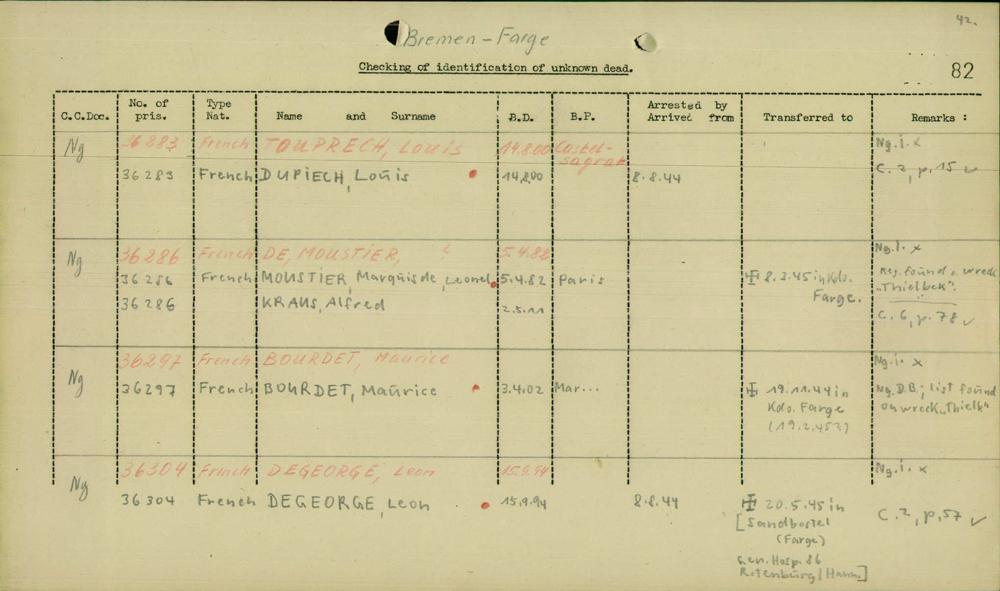 42.
Bremen-Farge
Checking of identification of unknown dead.
82
C.C.Doc. No. of pris. Type Nat. Name and Surname B.D. B.P. Arrested by Arrived from Transferred to Remarks :
Ng 36 883 French TOUPRECH, Louis 14.8.00 Castel-sagrat Ng.i. x
36 283 French DUPIECH, Louis 14.8.00 8.8.44 C. 2, p. 15 ✓
Ng 36 286 French DE, MOUSTIER, ? 5.4.82 Ng.i. x
36 286 French MOUSTIER, Marquis de, Leonel 5.4.82 Paris ✠ 8.3.45 in Kdo. Farge. Reg. found wreck "Thielbek".
36 286 KRAUS, Alfred 2.5.11 C. 6, p. 78 ✓
Ng 36297 French BOURDET, Maurice Ng.i. x
36297 French BOURDET, Maurice 3.4.02 Mar... ✠ 19.11.44 in Kdo. Farge (19.2.45?) Ng. D.B.; list found on wreck "Thielb"
Ng 36304 French DEGEORGE, Leon 15.9.94 Ng.i. x
36304 French DEGEORGE, Leon 15.9.94 8.8.44 ✠ 20.5.45 in C. 2, p. 57 ✓
[Sandbostel
(Farge)
Gen. Hosp. 86
Rotenburg/Hann.]